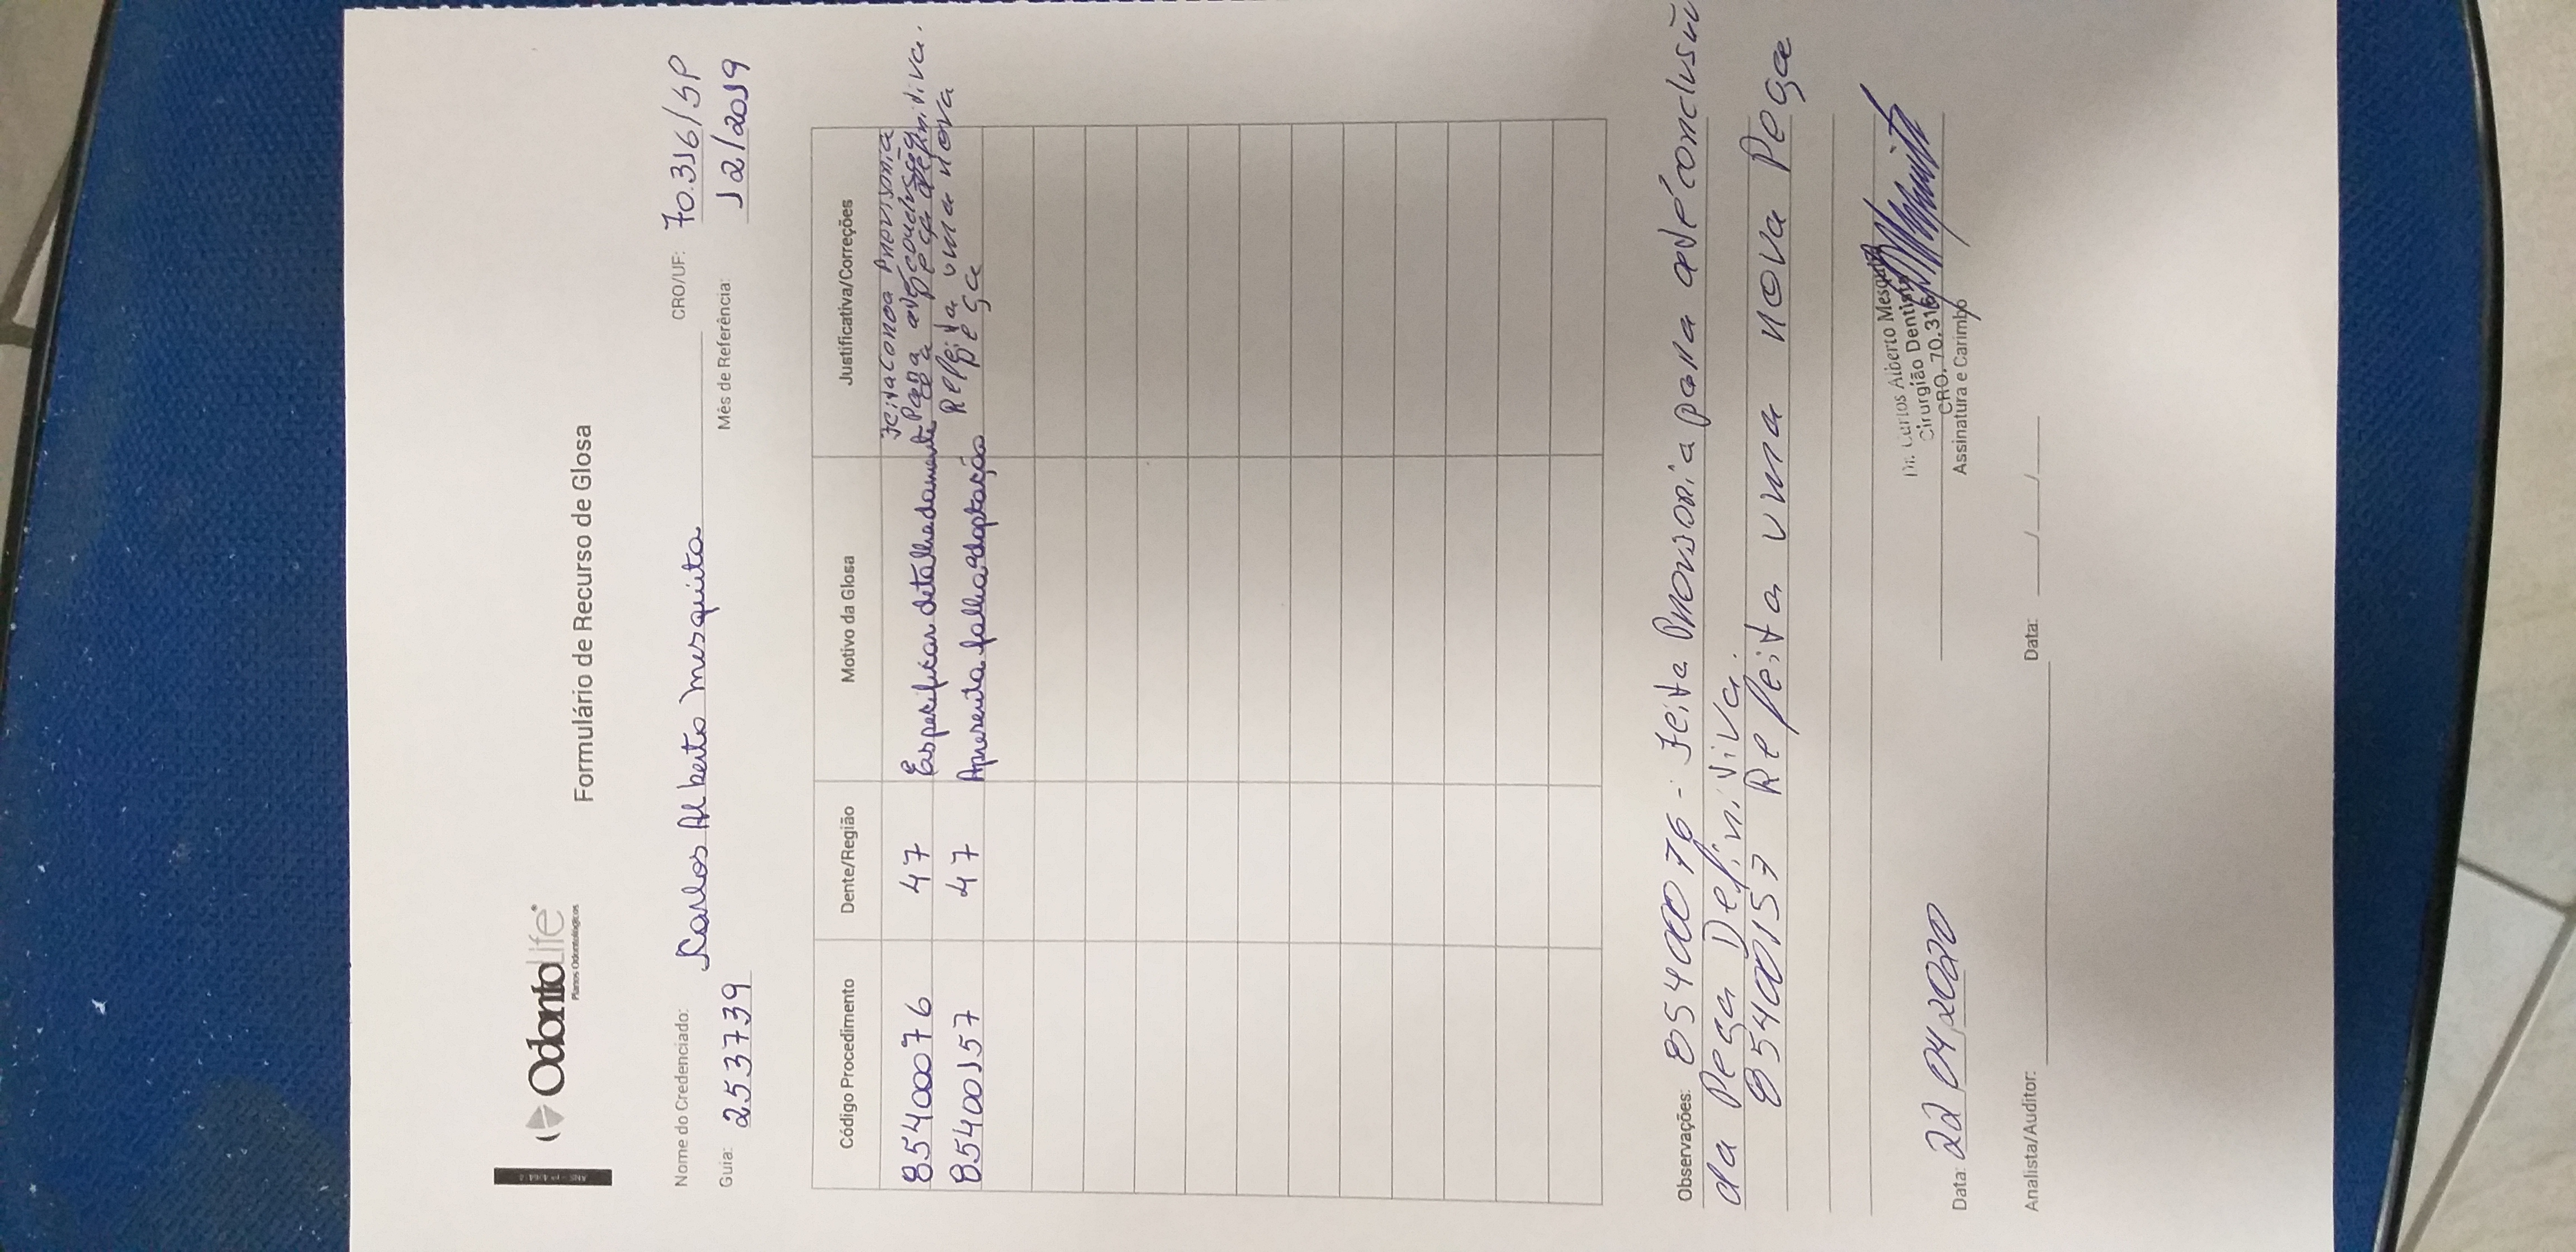 OdontoLife
Planos Odontológicos
Formulário de Recurso de Glosa
Nome do Credenciado: Carlos Alberto Mesquita CRO/UF: 70.316/SP
Guia: 2537739 Mês de Referência: 12/2019
Código Procedimento Dente/Região Motivo da Glosa Justificativa/Correções
85400076 47 Especificar detalhadamente Feita Coroa Provisoria
para até conclusão
da peça definitiva.
85400157 47 Apresenta falha adaptação Refeita uma nova
peça
Observações: 85400076 - Feita Provisoria para até conclusão
da Peça Definitiva.
85400157 Refeita uma nova Peça
Dr. Carlos Alberto Mesquita
Cirurgião Dentista
CRO. 70.316
Data: 22 04 2020 Assinatura e Carimbo
Analista/Auditor: Data: / /